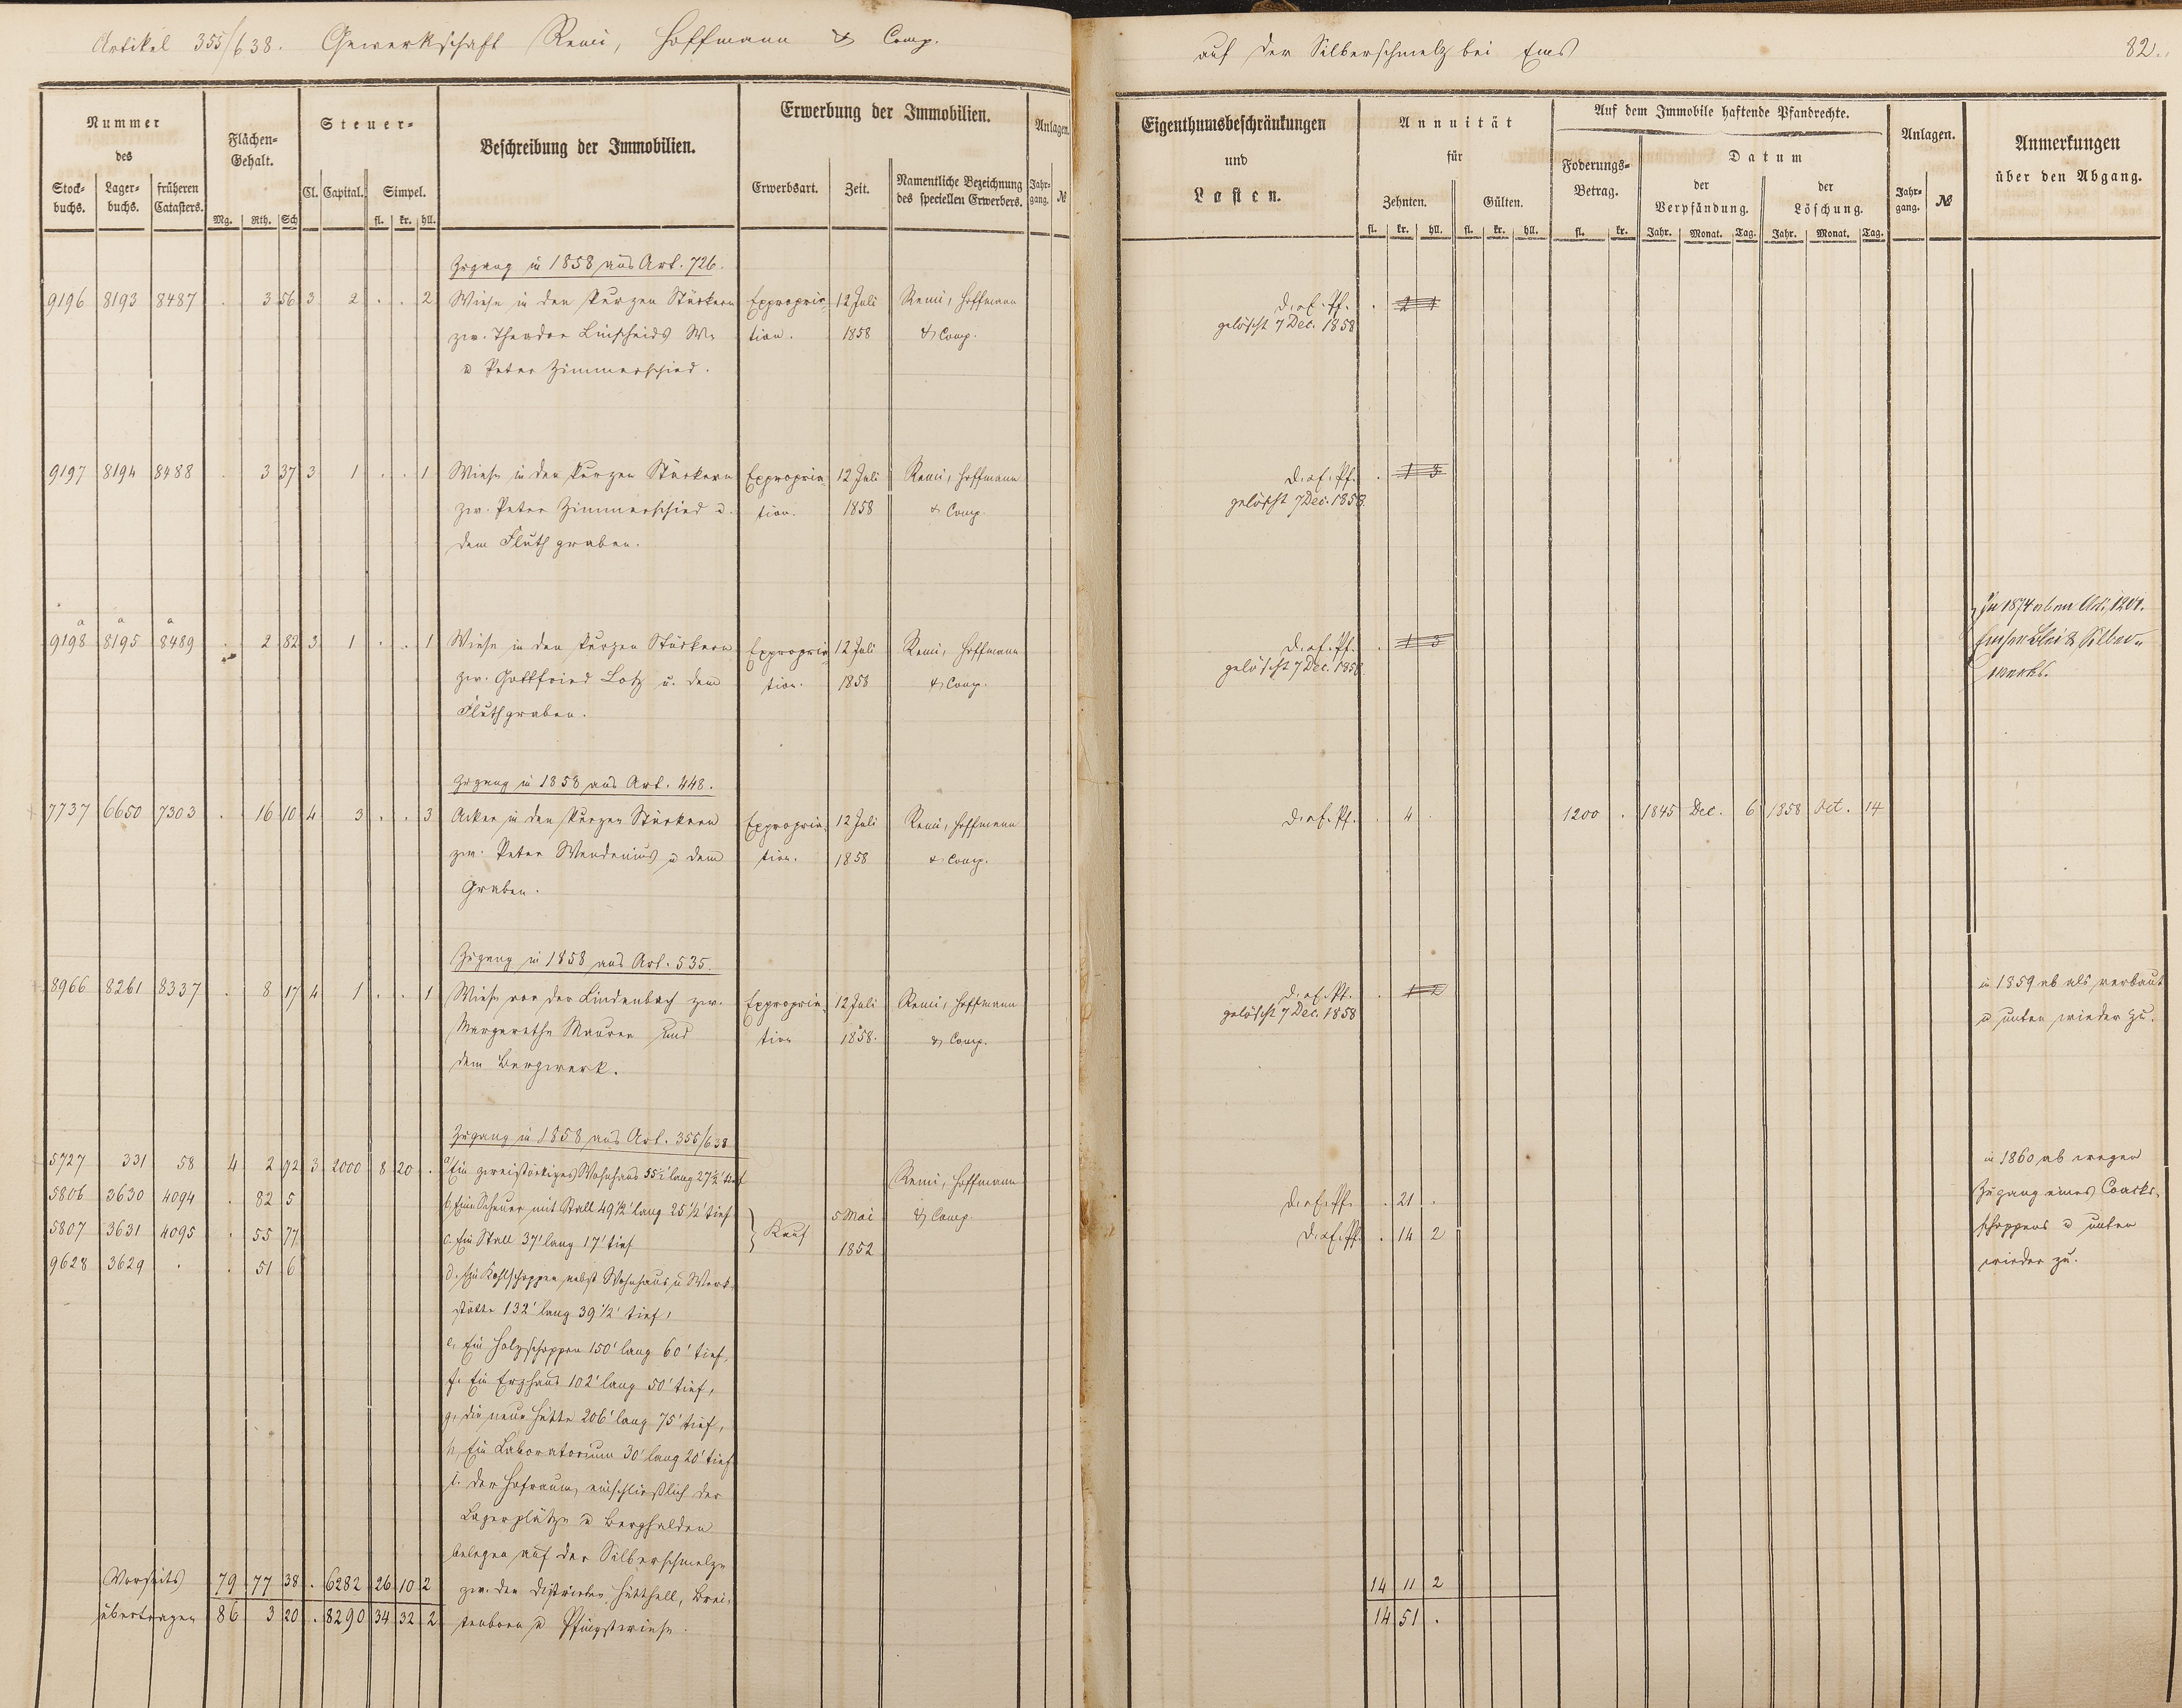 Artikel 355/638. Gewerkschaft Remi, Hoffmann & Comp.
auf der Silberschmelz bei Ems
82.
Nummer
des
Stock-
buchs.
Lager-
buchs.
früheren
Catasters.
Flächen-
Gehalt.
Mg. Rth. Sch
Steuer-
Cl. Capital. Simpel.
fl. kr. hll.
Beschreibung der Immobilien.
Erwerbung der Immobilien.
Erwerbsart. Zeit.
Namentliche Bezeichnung
des speciellen Erwerbers.
Anlagen.
Jahr-
gang. №
Eigenthumsbeschränkungen
und
Lasten.
Annuität
für
Zehnten. Gülten.
fl. kr. hll. fl. kr. hll.
Auf dem Immobile haftende Pfandrechte.
Foderungs-
Betrag.
fl. kr.
Datum
der
Verpfändung.
der
Löschung.
Jahr. Monat. Tag. Jahr. Monat. Tag.
Anlagen.
Jahr-
gang. №
Anmerkungen
über den Abgang.
Zugang in 1858 aus Art. 726.
9196 8193 8487 . 3 56 3 2 . . 2 Wiese in den kurzen Stückern Expropria- 12 Juli Remi, Hoffmann d. rf. Pf. . 2 1
zw. Theodor Linscheids We tion. 1858 & Comp. gelöscht 7 Dec. 1858
u Peter Zimmerschied.
9197 8194 8488 . 3 37 3 1 . . 1 Wiese in den kurzen Stückern Expropria- 12 Juli Remi, Hoffmann d. rf. Pf. . 1 3
zw. Peter Zimmerschied u. tion. 1858 & Comp. gelöscht 7 Dec. 1858.
dem Fluthgraben.
a a a
9198 8195 8489 . 2 82 3 1 . . 1 Wiese in den kurzen Stückern Expropria- 12 Juli Remi, Hoffmann d. rf. Pf. . 1 3
zw. Gottfried Lotz u. dem tion. 1858 & Comp. gelöscht 7 Dec. 1858
Fluthgraben.
In 1874 ab an Art. 1201.
Emser Blei & Silber-
werks.
Zugang in 1858 aus Art. 448.
7737 6650 7303 . 16 10 4 3 . . 3 Acker in den kurzen Stückern Expropria- 12 Juli Remi, Hoffmann d. rf. Pf. . 4 . 1200 . 1845 Dec. 6 1858 Oct. 14
zw. Peter Wendenius u dem tion. 1858 & Comp.
Graben.
Zugang in 1858 aus Art. 535.
8966 8261 8337 . 8 17 4 1 . . 1 Wiese vor der Lindenbach zw. Expropria- 12 Juli Remi, Hoffmann d. rf. Pf. . 1 2 in 1859 ab als verbaut
Margarethe Maurer und tion 1858. & Comp. gelöscht 7 Dec. 1858 u unten wieder zu.
dem Bergwerk.
Zugang in 1858 aus Art. 355/638
5727 331 58 4 2 92 3 2000 8 20 . a, Ein zweistöckiges Wohnhaus 55 1/2' lang 27 1/2' tief Remi, Hoffmann in 1860 ab wegen
5806 3630 4094 . 82 5 b, Eine Scheuer mit Stall 49 1/2' lang 25 1/2' tief 5 Mai & Comp. d. rf. Pf. . 21 . Zugang eines Coacks-
5807 3631 4095 . 55 77 c. Ein Stall 37' lang 17' tief Kauf 1852 d. rf. Pf. . 14 2 schoppens u unten
9628 3629 . . 51 6 d. Ein Kohlschoppen nebst Wohnhaus u Werk- wieder zu.
stätte 132' lang 39 1/2' tief,
e, Ein Holzschoppen 150' lang 60' tief,
f. Ein Erzhaus 102' lang 50' tief,
g, die neue Hütte 206' lang 75' tief,
h, Ein Laboratorium 30' lang 20' tief
i. der Hofraum, einschließlich der
Lagerplätze u Berghalden
belegen auf der Silberschmelze
Vorseits 79 77 38 . 6282 26 10 2 zw. den Distrikten Hütthell, Brei- 14 11 2
übertragen 86 3 20 . 8290 34 32 2 tenborn u Pfingstwiese. 14 51 .